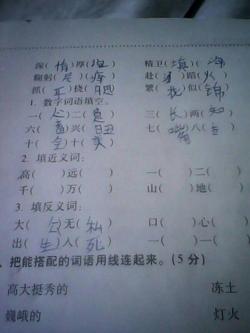 深(情)厚(谊) 精卫(填)海
鞠射(尽)瘁 赴(汤)蹈(火)
抓(耳)挠( ) 繁(花)似(锦)
1. 数字词语填空。
一(心)二(意) 三(长)两(短)
六( )兴(旺) 七(嘴)八( )
十(全)十(美)
2. 填近义词:
高( )远( ) 一( )二( )
千( )万( ) 山( )地(
3. 填反义词:
大(公)无(私) 口( )心(
出(生)入(死) 一( )一(
把能搭配的词语用线连起来。(5分)
高大挺秀的 冻土
巍峨的 灯火